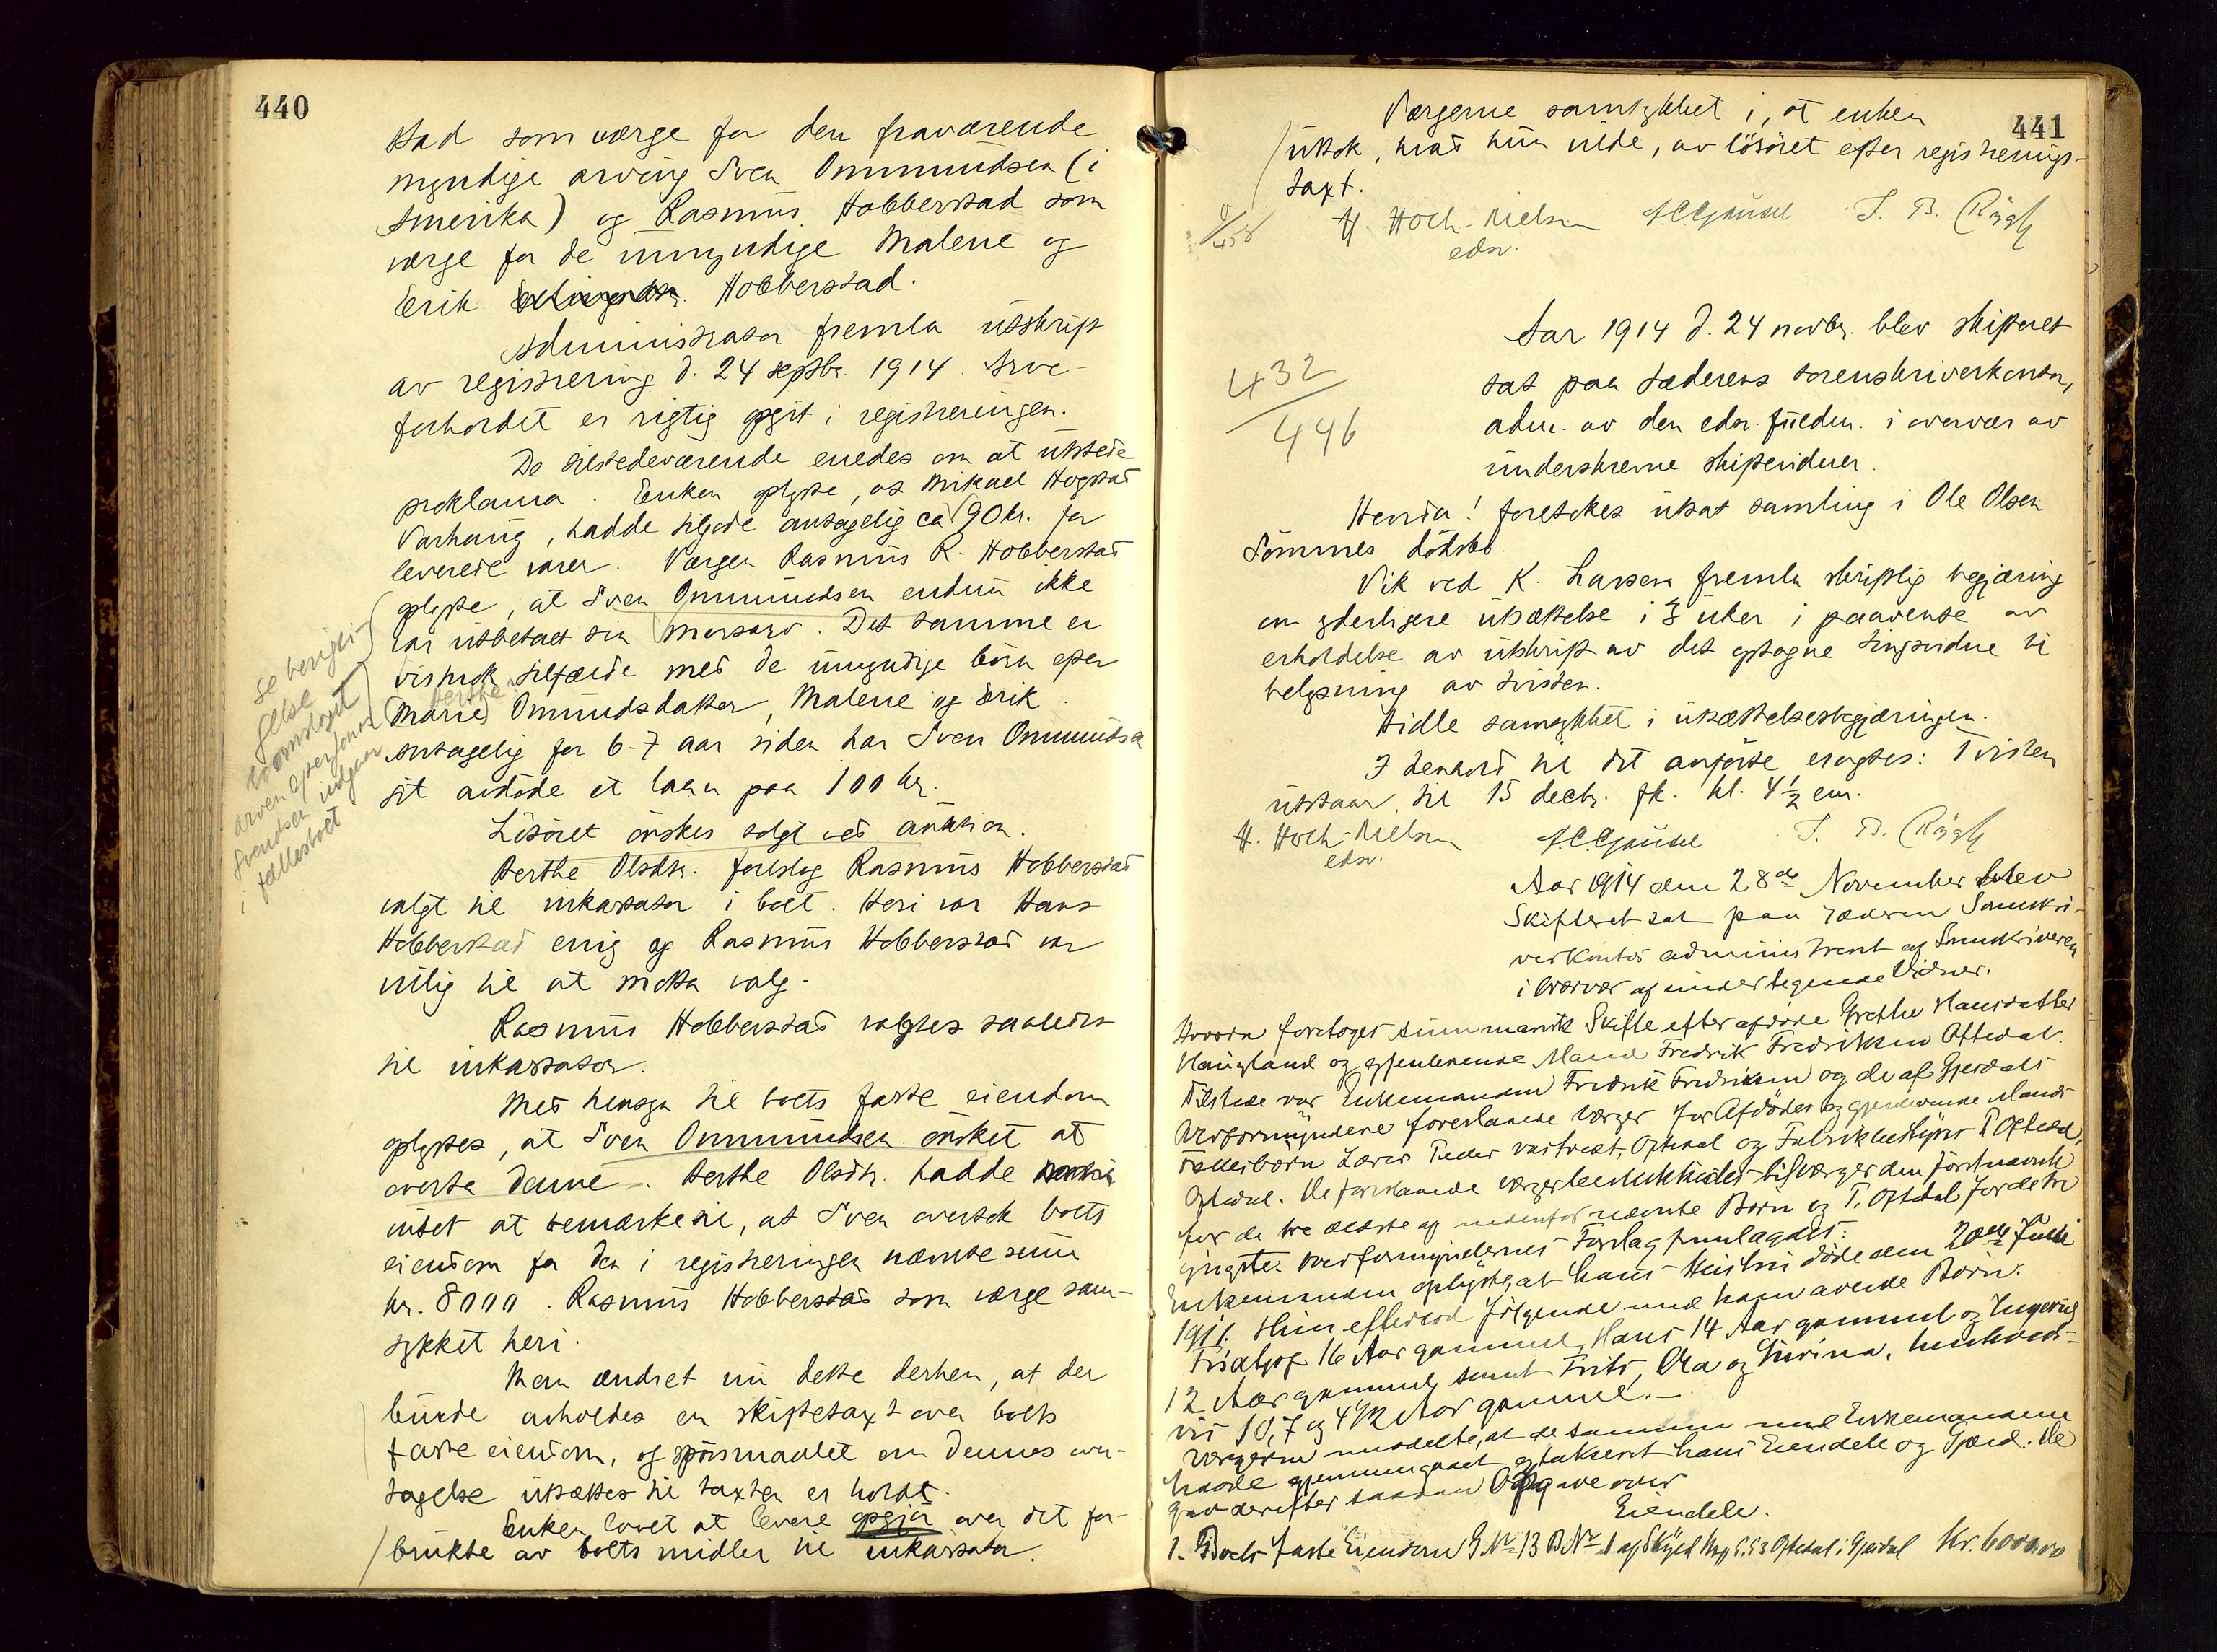 440
stad som værge for den fraværende
myndige arving Sven Ommundsen (i
Amerika) og Rasmus Hobberstad som
værge for de umyndige Malene og
Erik Hobberstad.
Administrator fremla utskrift
av registrering d. 24 septbr. 1914. Arve-
forhordet er rigtig opgit i registreringen.
De tilstedeværende enedes om at utstede
proklama. Enken oplyste, at Mikael Hogstad
Varhaug, hadde tilgode antagelig ca 90 kr. for
leverede varer. Værgen Rasmus R. Hobberstad
oplyste, at Sven Ommundsen endnu ikke
har utbetalt sin morsarv. Det samme er
visnok tilfælde med de umyndige børn efter
Marie Omundsdatter, Malene og Erik.
Berthe
Antagelig for 6-7 aar siden har Sven Ommundsen
git avdøde et laan paa 100 kr.
Løsøret ønskes solgt ved auktion.
Berthe Olsdtr. foreslog Rasmus Hobberstad
valgt til inkassator i boet. Heri var Hans
Hobberstad enig og Rasmus Hobberstad var
villig til at motta valg.
Rasmus Hobberstad valgtes saaledes
til inkassator.
Med hensyn til boets faste eiendom
oplystes, at Sven Ommundsen ønsket at
overta denne. Berthe Olsdtr. hadde
intet at bemærke til, at Sven overtok boets
eiendom for den i registreringen nævnte sum
kr. 8000. Rasmus Hobberstad som værge sam-
tykket heri.
Man ændret nu dette derhen, at der
burde avholdes en skiftetaxt over boets
faste eiendom, og spørsmaalet om dennes over-
tagelse utsættes til taxten er holdt.
Enken lovet at levere opgjør over det for-
brukte av boets midler til inkassator.
se berigti-
gelse
arven efter
Svendsen indgaar
i fællesboet
441
Værgerne samtykket i, at enken
uttok, hvad hun vilde, av løsøret efter registrerings-
taxt.
H. Hoch-Nielsen A.C. Gausel T. B. Rygh
edsv.
432
446
Aar 1914 d. 24 novbr. blev skifteret
sat paa Jæderens sorenskriverkontor,
adm. av den edsv. fuldm. i overvær av
underskrevne skiftevidner.
Hvorda! foretokes utsat samling i Ole Olsen
Sømmes dødsbo.
Vik ved K. Larsen fremla skriftlig begjæring
om yderligere utsættelse i 3 uker i paavente av
erholdelse av utskrift av det optagne tingsvidne til
belysning av tvisten.
Hidle samtykket i utsættelsesbegjæringen.
I henhold til det anførte eragtes: Tvisten
utstaar til 15 decbr. fk. kl. 4 1/2 em.
H. Hoch-Nielsen A.C. Gausel T. B. Rygh
edsv.
Aar 1914 den 28de November blev
Skifteret sat paa Jæderen Sorenskri-
verkontor administreret af Sorenskriveren
i Overvær af undertegnede Vidner.
Hvorda foretoges summarisk Skifte efter afdøde Grethe Hansdatter
Haugland og gjenlevende Mand Fredrik Fredriksen Oftedal.
Tilstede var Enkemanden Fredrik Fredriksen og de af Gjesdals
Overformyndere foreslaaede Værger for Afdødes og gjenlevende Mands
Fællesbørn Lærer Peder Oftedal og Fabrikbestyrer T. Oftedal,
Oftedal. De foreslaaede Værger den førstnævnte
for de tre ældste af nedenfor nævnte Børn og T. Oftedal for de tre
yngste. Overformyndernes Forslag fremlagdes.
Enkemanden oplyste, at hans Hustru døde den 20de Juli
1911. Hun efterlod følgende med ham avlede Børn:
Fridtjof 16 Aar gammel, Hans 14 Aar gammel og Ingvald
12 Aar gammel, samt Frits, Ola og Gurina, henholds-
vis 10, 7 og 4 1/2 Aar gammel.
Værgerne meddelte, at de sammen med Enkemanden
havde gjennemgaaet og takseret hans Eiendele og Gjæld. De
gav derefter saadan Opgave over
Eiendele.
1. Boets faste Eiendom G.Nr. 13 B.Nr. 1 af Skyld Oftedal i Gjesdal Kr. 6000.00